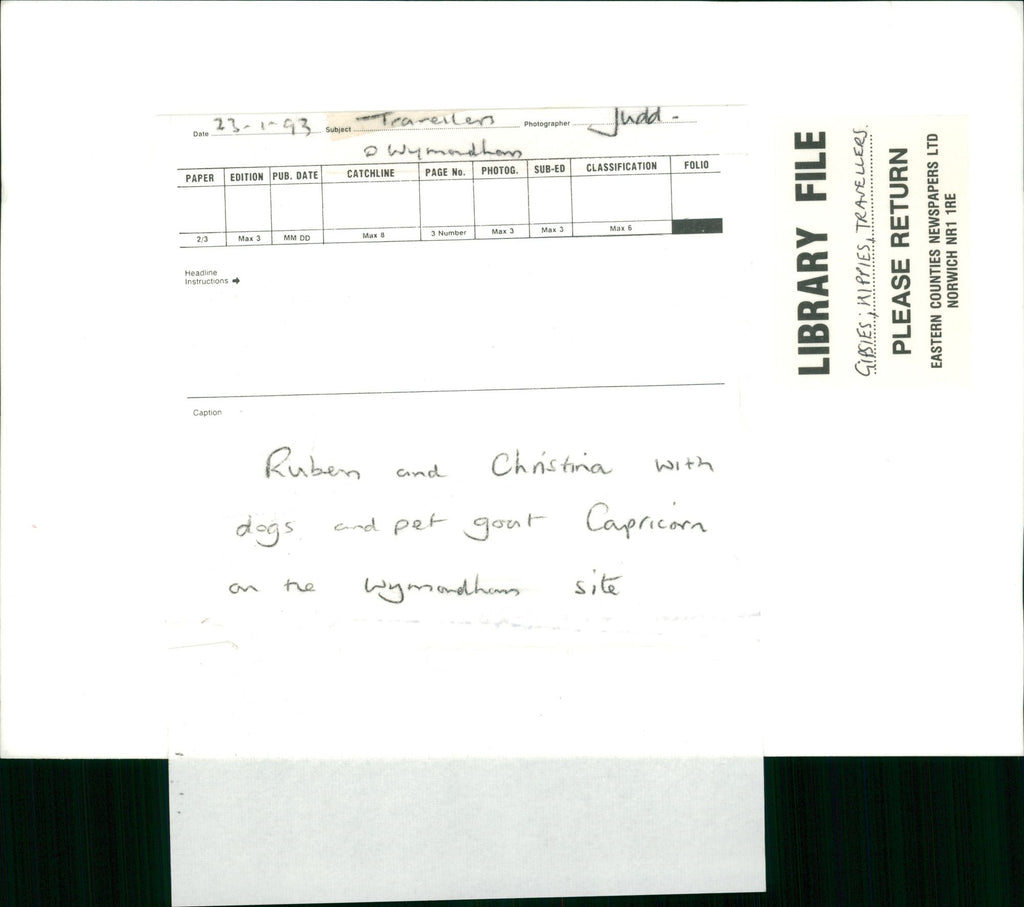 Date 23-1-93 Subject Travellers Photographer Judd-
@ Wymondham
PAPER EDITION PUB. DATE CATCHLINE PAGE No. PHOTOG. SUB-ED CLASSIFICATION FOLIO
2/3 Max 3 MM DD Max 8 3 Number Max 3 Max 3 Max 6
Headline
Instructions →
Caption
Ruben and Christina with
dogs and pet goat Capricorn
on the Wymondham site
LIBRARY FILE
GIPSIES; HIPPIES, TRAVELLERS.
PLEASE RETURN
EASTERN COUNTIES NEWSPAPERS LTD
NORWICH NR1 1RE